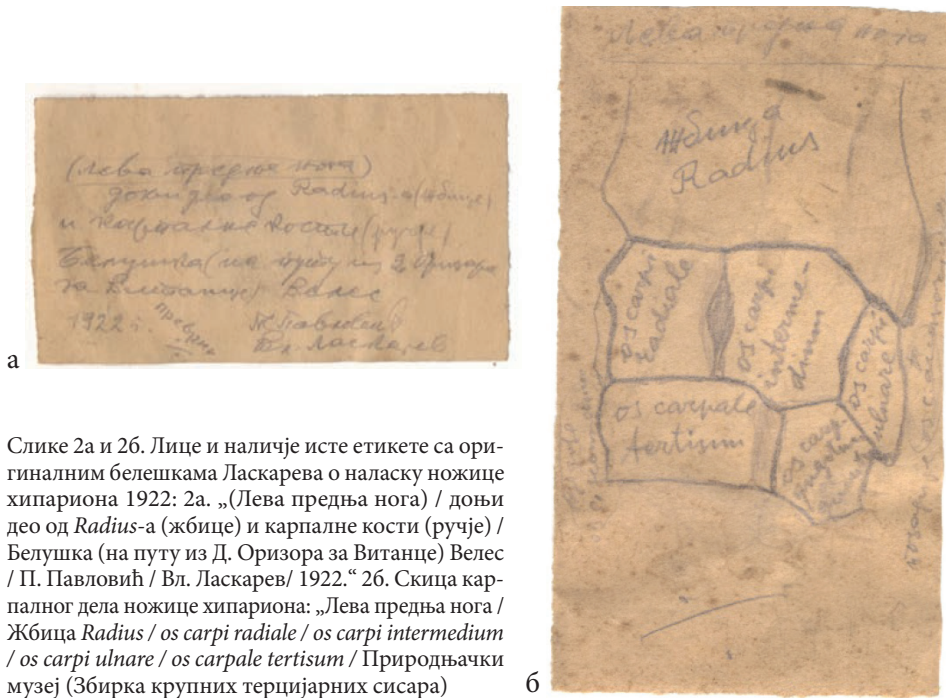 (лева предња нога)
доњи део од Radius-а (жбице)
и карпалне кости (ручје)
Белушка (на путу из Д. Оризара
за Витанце) Велес
1922 г. преврни
П. Павловић
Вл. Ласкарев
а
Слике 2а и 2б. Лице и наличје исте етикете са ори-
гиналним белешкама Ласкарева о наласку ножице
хипариона 1922: 2а. „(Лева предња нога) / доњи
део од Radius-а (жбице) и карпалне кости (ручје) /
Белушка (на путу из Д. Оризора за Витанце) Велес
/ П. Павловић / Вл. Ласкарев/ 1922.“ 2б. Скица кар-
палног дела ножице хипариона: „Лева предња нога /
Жбица Radius / os carpi radiale / os carpi intermedium
/ os carpi ulnare / os carpale tertisum / Природњачки
музеј (Збирка крупних терцијарних сисара)
Лева предња нога
Жбица
Radius
os carpi
radiale
os carpi
interme-
dium
os carpi
ulnare
os carpale
tertisum
os carpi
б